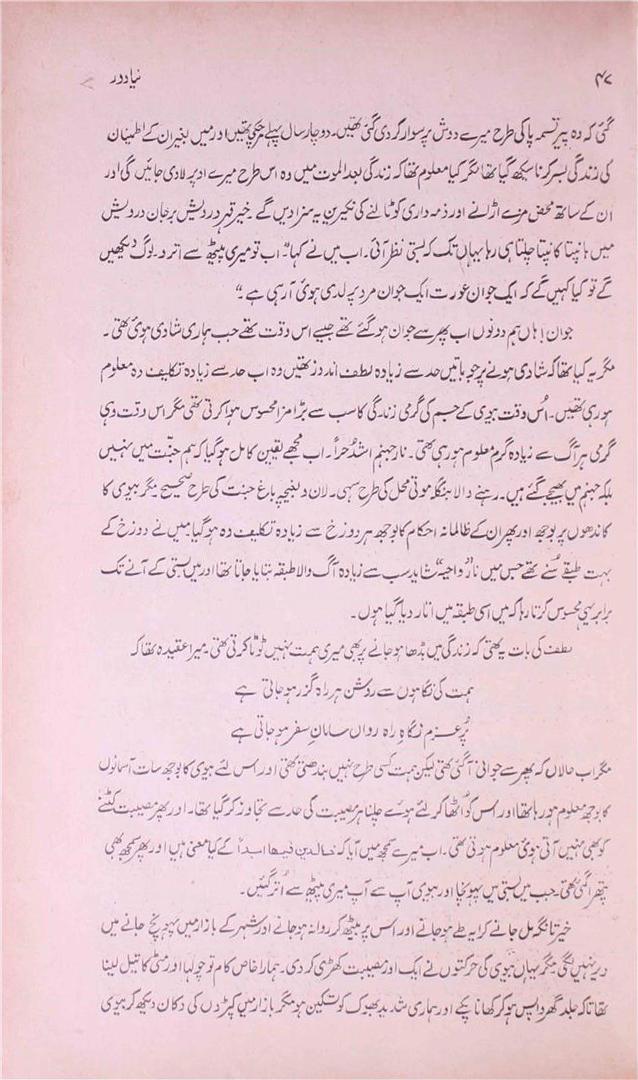 ۴۷
نیا دور
گئی کہ وہ پیر تسمہ پا کی طرح میرے دوش پر سوار کر دی گئی تھیں۔ دو چار سال پہلے مر چکی تھیں اور میں بغیر ان کے اطمینان
کی زندگی بسر کرنا سیکھ گیا تھا مگر کیا معلوم تھا کہ زندگی بعد الموت میں وہ اس طرح میرے اوپر لادی جائیں گی اور
ان کے ساتھ محض مزے اڑانے اور ذمہ داری کو ٹالنے کی نکیرین یہ سزا دیں گے۔ خیر قہر درویش بر جان درویش
میں ہانپتا کانپتا چلتا ہی رہا یہاں تک کہ بستی نظر آئی۔ اب میں نے کہا "اب تو میری پیٹھ سے اترو۔ لوگ دیکھیں
گے تو کیا کہیں گے کہ ایک جوان عورت ایک جوان مرد پر لدی ہوئی آ رہی ہے۔"
جوان! ہاں ہم دونوں اب پھر سے جوان ہو گئے تھے جیسے اس وقت تھے جب ہماری شادی ہوئی تھی۔
مگر یہ کیا تھا کہ شادی ہونے پر جو باتیں حد سے زیادہ لطف اندوز تھیں وہ اب حد سے زیادہ تکلیف دہ معلوم
ہو رہی تھیں۔ اُس وقت بیوی کے جسم کی گرمی زندگی کا سب سے بڑا مزا محسوس ہوا کرتی تھی مگر اس وقت وہی
گرمی ہر آگ سے زیادہ گرم معلوم ہو رہی تھی۔ نار جہنم اشد حراً۔ اب مجھے یقین کامل ہو گیا کہ ہم جنّت میں نہیں
بلکہ جہنم میں بھیجے گئے ہیں۔ رہنے والا بنگلہ موتی محل کی طرح سہی۔ لان و بغیچہ باغ جنت کی طرح صحیح مگر بیوی کا
کاندھوں پر بوجھ اور پھر ان کے ظالمانہ احکام کا بوجھ ہر دوزخ سے زیادہ تکلیف دہ ہو گیا میں نے دوزخ کے
بہت طبقے سُنے تھے جس میں نارٌ شاید سب سے زیادہ آگ والا طبقہ بتایا جاتا تھا اور میں بستی کے آنے تک
برابر یہی محسوس کرتا رہا کہ میں اسی طبقہ میں اتار دیا گیا ہوں۔
لطف کی بات یہ تھی کہ زندگی میں بڈھا ہو جانے پر بھی میری ہمت نہیں ٹوٹا کرتی تھی۔ میرا عقیدہ تھا کہ
ہمت کی نگاہوں سے روشن ہر راہ گزر ہو جاتی ہے
پُر عزم نگاہِ راہ رواں سامانِ سفر ہو جاتی ہے
مگر اب حالاں کہ پھر سے جوانی آ گئی تھی لیکن ہمت کسی طرح نہیں بندھتی تھی اور اس لئے بیوی کا بوجھ سات آسمانوں
کا بوجھ معلوم ہو رہا تھا اور اس کو اٹھا کر لئے ہوئے چلنا ہر مصیبت کی حد سے تجاوز کر گیا تھا۔ اور پھر مصیبت کٹنے
کو بھی نہیں آتی ہوئی معلوم ہوتی تھی۔ اب میرے سمجھ میں آیا کہ خالدین فیھا ابداً کے کیا معنی ہیں اور پھر سمجھ بھی
پتھرا گئی تھی۔ جب میں بستی میں پہونچا اور بیوی آپ سے آپ میری پیٹھ سے اُتر گئیں۔
خیر تانگہ مل جانے کرایہ طے ہو جانے اور اس پر بیٹھ کر روانہ ہو جانے اور شہر کے بازار میں پہونچ جانے میں
دیر نہیں لگی مگر یہاں بیوی کی حرکتوں نے ایک اور مصیبت کھڑی کر دی۔ ہمارا خاص کام تو چولہا اور مٹی کا تیل لینا
تھا تاکہ جلد گھر واپس ہو کر کھانا پکے اور ہماری شدید بھوک کو تسکین ہو مگر بازار میں کپڑوں کی دکان دیکھ کر بیوی